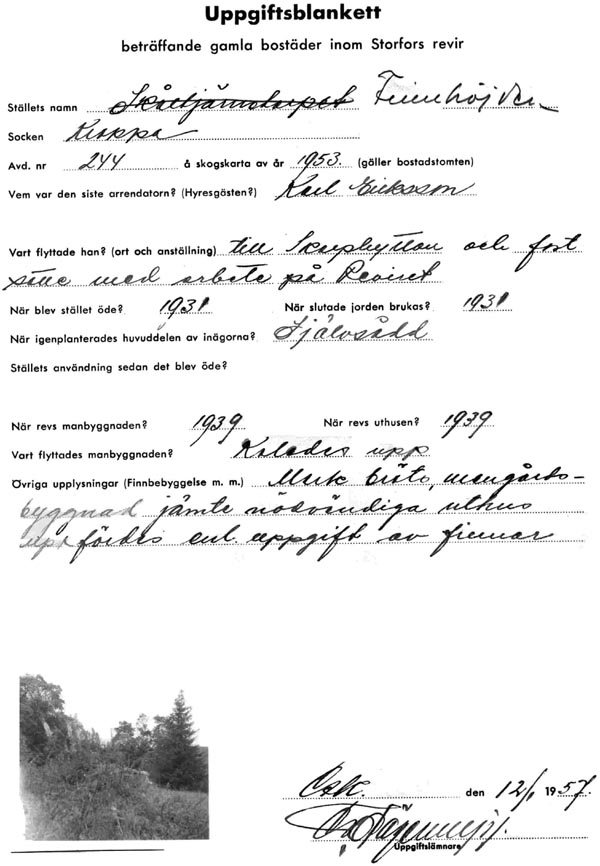 Uppgiftsblankett
beträffande gamla bostäder inom Storfors revir
Ställets namn Finnhöjden
Socken Kroppa
Avd. nr 244 å skogskarta av år 1953. (gäller bostadstomten)
Vem var den siste arrendatorn? (Hyresgästen?) Karl Eriksson
Vart flyttade han? (ort och anställning) till och fort
satte med arbete på Reviret
När blev stället öde? 1931 När slutade jorden brukas? 1931
När igenplanterades huvuddelen av inägorna? Självsådd
Ställets användning sedan det blev öde?
När revs manbyggnaden? 1939 När revs uthusen? 1939
Vart flyttades manbyggnaden? Kolades upp
Övriga upplysningar (Finnbebyggelse m. m.) Mark bröts, mangårds-
byggnad jämte nödvändiga uthus
uppfördes enl. uppgift av finnar
den 12/1 1957.
Uppgiftslämnare